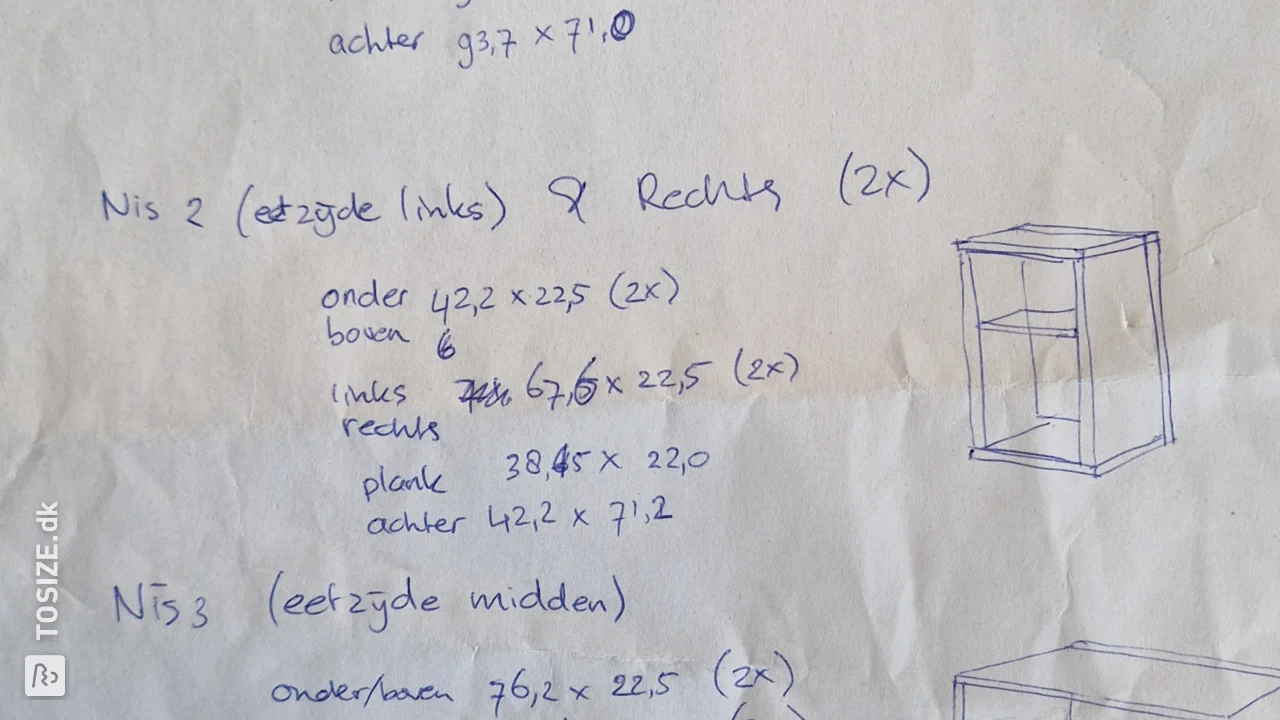 achter 93,7 x 71,0
Nis 2 (eetzijde links) & Rechts (2x)
onder 42,2 x 22,5 (2x)
boven 6
links 67,6 x 22,5 (2x)
rechts
plank 38,45 x 22,0
achter 42,2 x 71,2
Nis 3 (eetzijde midden)
onder/boven 76,2 x 22,5 (2x)
TOSIZE.dk